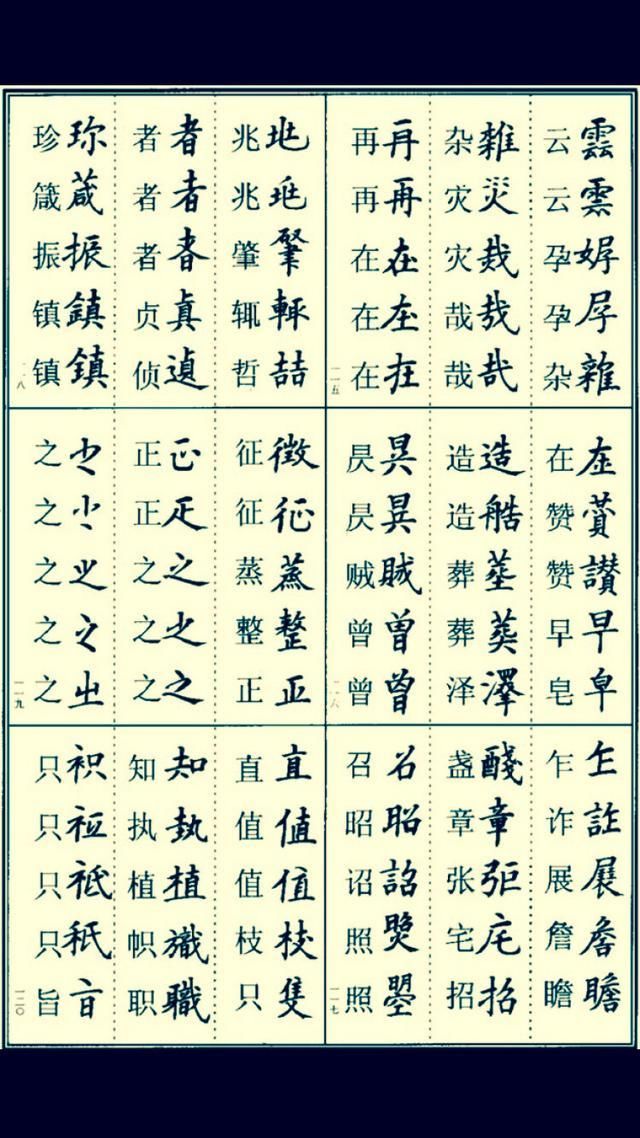 云雲 云雲 孕㛛 孕孕 杂雜
杂雜 灾災 灾烖 哉哉 哉哉
再再 再再 在在 在在 在在
一一五
在在 赞賛 赞讃 早早 皂皁
造造 造艁 葬塟 葬葬 泽澤
昃昃 昃昃 贼賊 曾曾 曾曾
一一六
乍乍 诈詐 展展 詹詹 瞻瞻
盏醆 章章 张弡 宅宅 招招
召召 昭昭 诏詔 照照 照曌
一一七
兆兆 兆兆 肇肇 辄輒 哲喆
者者 者者 者者 贞真 侦遉
珍珎 箴葴 振振 镇鎮 镇鎮
一一八
征徴 征征 蒸蒸 整整 正正
正正 正疋 之之 之之 之之
之之 之之 之之 之之 之㞢
一一九
直直 值值 值值 枝枝 只隻
知知 执执 植植 帜旘 职職
只衹 只衹 只祗 只秖 旨旨
一二〇